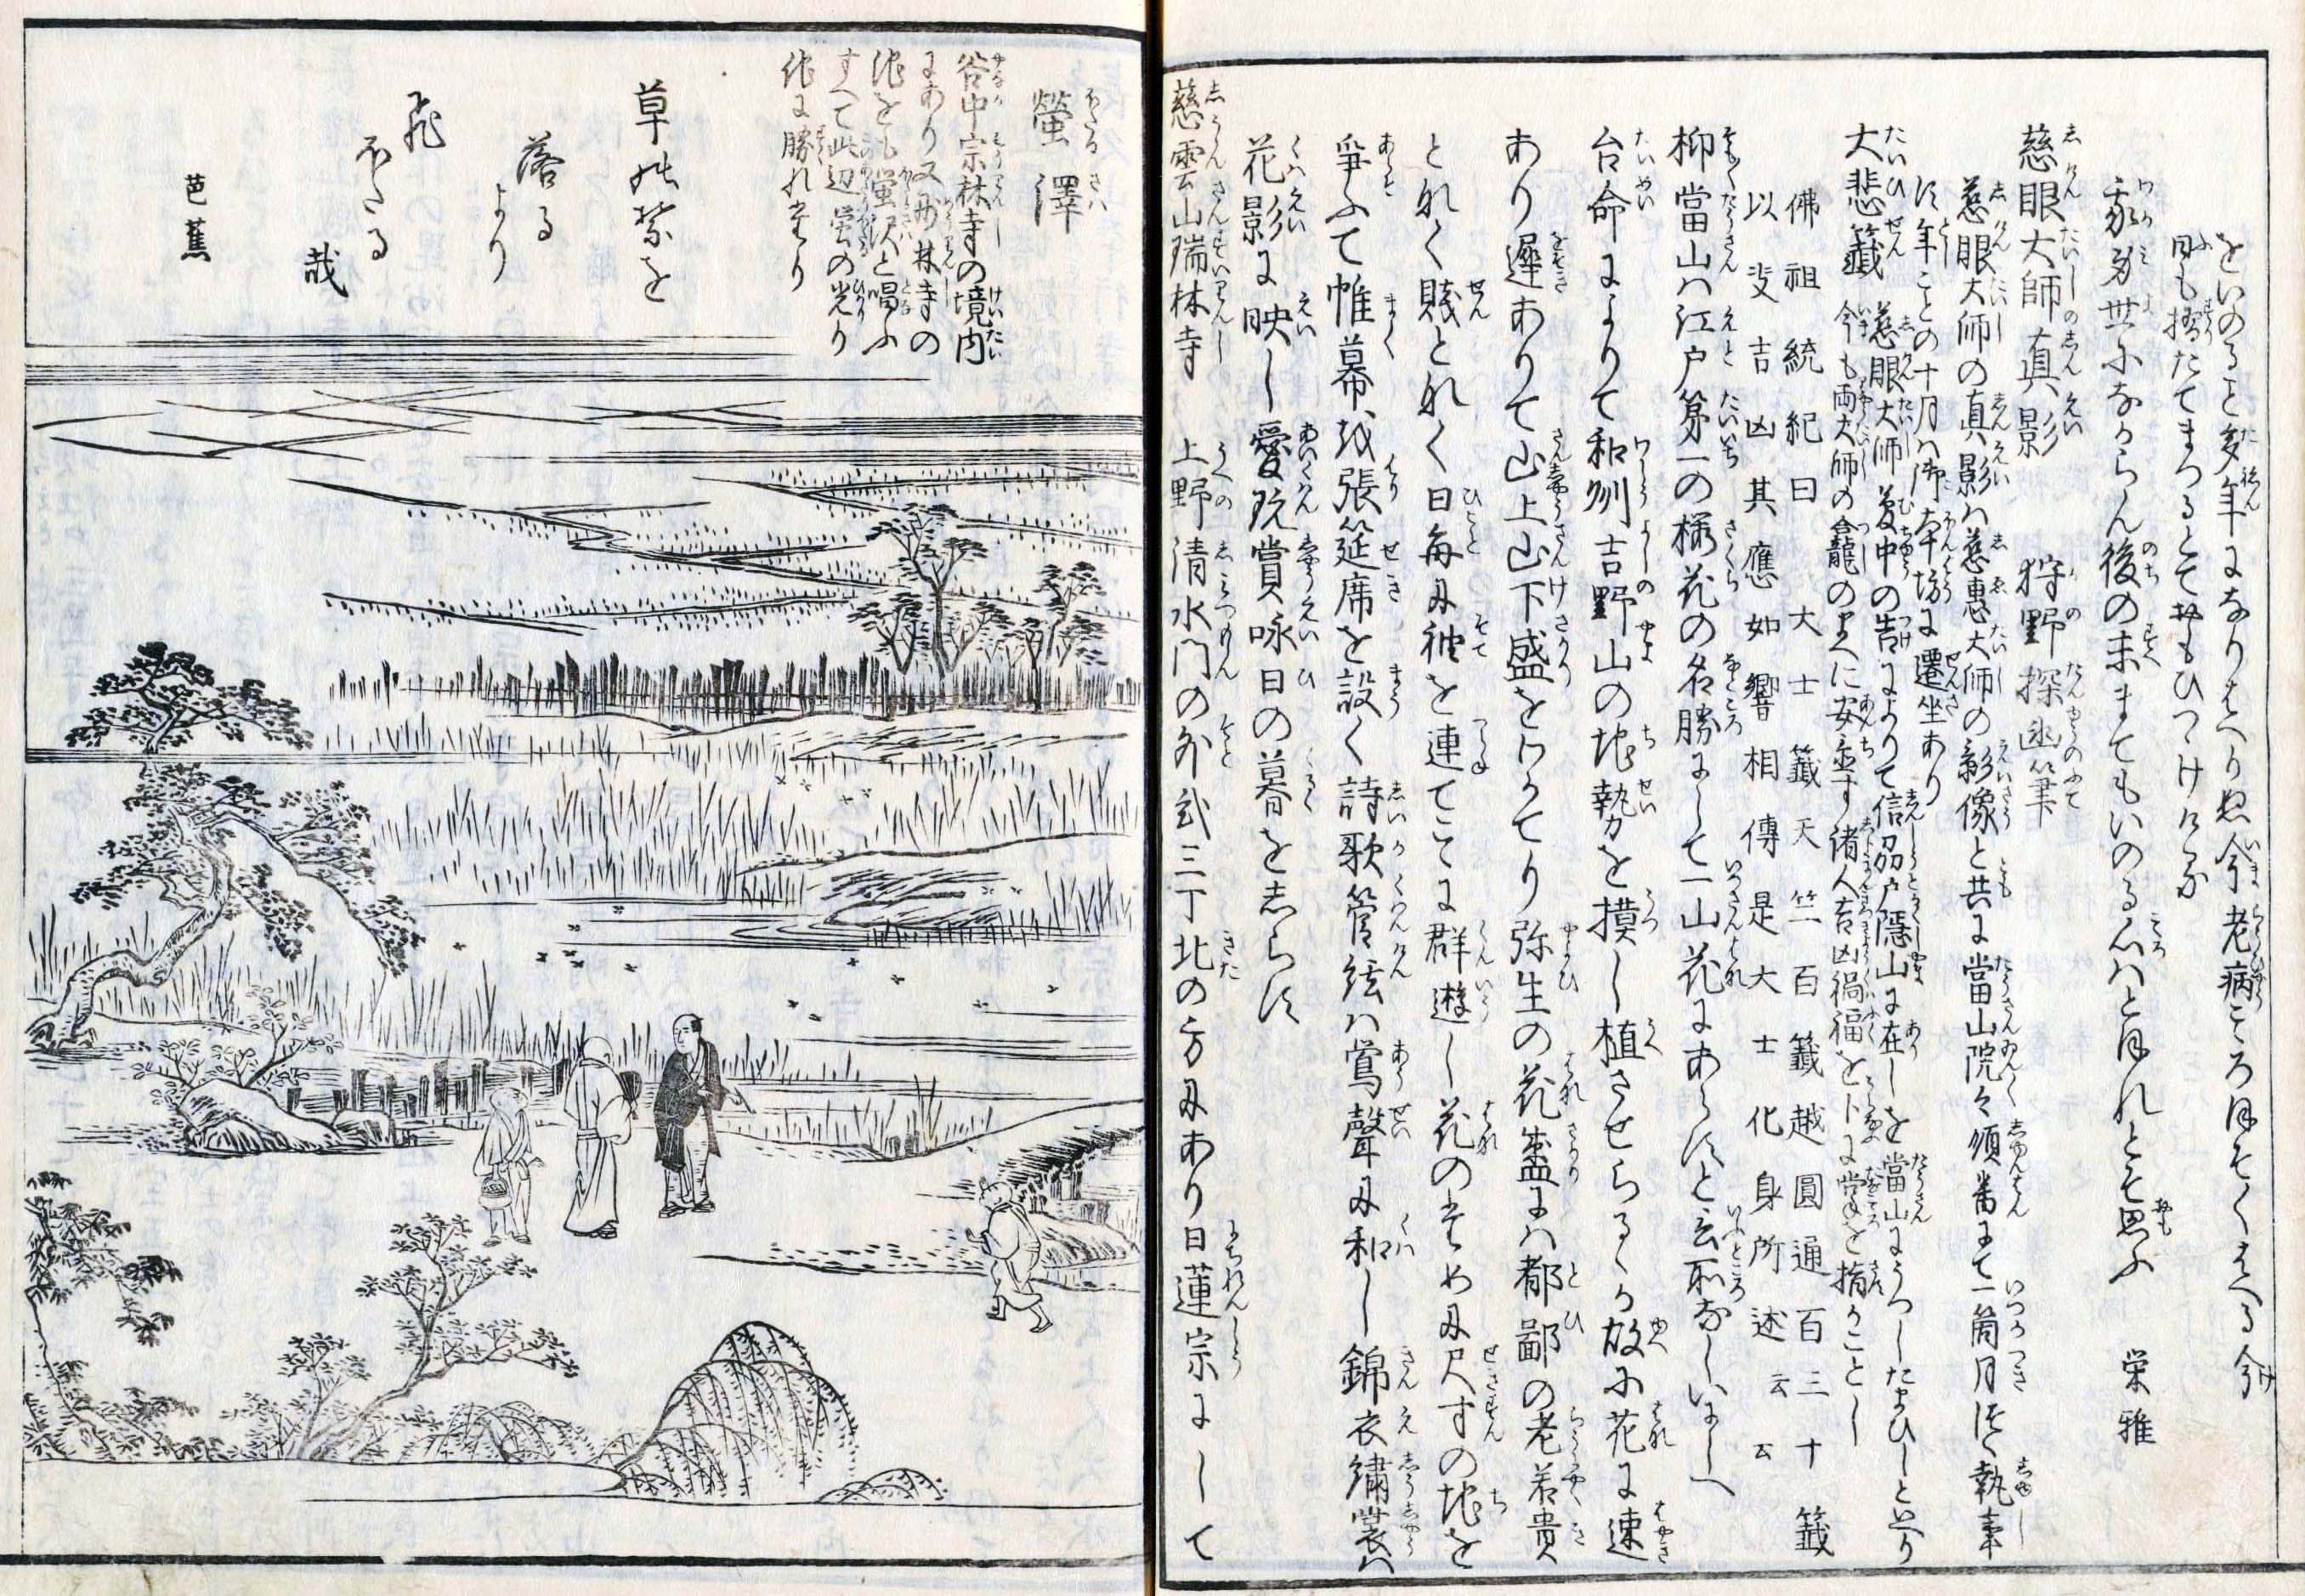 をいのること多年になりはへりぬ今老病ころほそくはへる今
日も摺たてまつるとておもひつゝけける
我身世になからん後の末まてもいのる心はとほれとそ思ふ 栄雅
慈眼大師真影 狩野探幽筆
慈眼大師の真影は慈惠大師の影像と共に當山院々順番にて一箇月つゝ執事
す年ことの十月は御本坊に遷坐あり
大悲籤 慈眼大師夢中の告によりて信刕戸隠山に在しを當山にうつしたまひしといふ
今も両大師の龕の裏に安置す諸人吉凶禍福を卜に掌を指かことし
佛祖統紀曰 大士籤天竺百籤越圓通百三十籤
以叟吉凶其應如響相傳是大士化身所述云云
抑當山は江戸第一の桜花の名勝にして一山花にあらすと云所なしいにしへ
台命によりて和州吉野山の地勢を摸し植させらるゝか故に花に速
あり遲ありて山上山下盛をわかてり弥生の花盛には都鄙の老若貴
となく賎となく日毎に袖を連てこゝに群遊し花のために尺寸の地を
爭ふて帷幕を張筵席を設く詩歌管絃は鶯聲に和し錦衣繡裳は
花影に映し愛玩賞咏日の暮るを志らす
慈雲山瑞林寺 上野清水門の外弐三丁北の方にあり日蓮宗にして
螢澤
谷中宗林寺の境内
にあり又妙林寺の
池をも蛍沢と唱ふ
すへて此辺蛍の光り
他に勝れたり
草の葉を
落る
より
飛
ほたる
哉
芭蕉